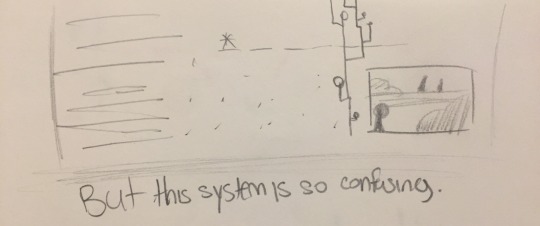 But this system is so confusing.